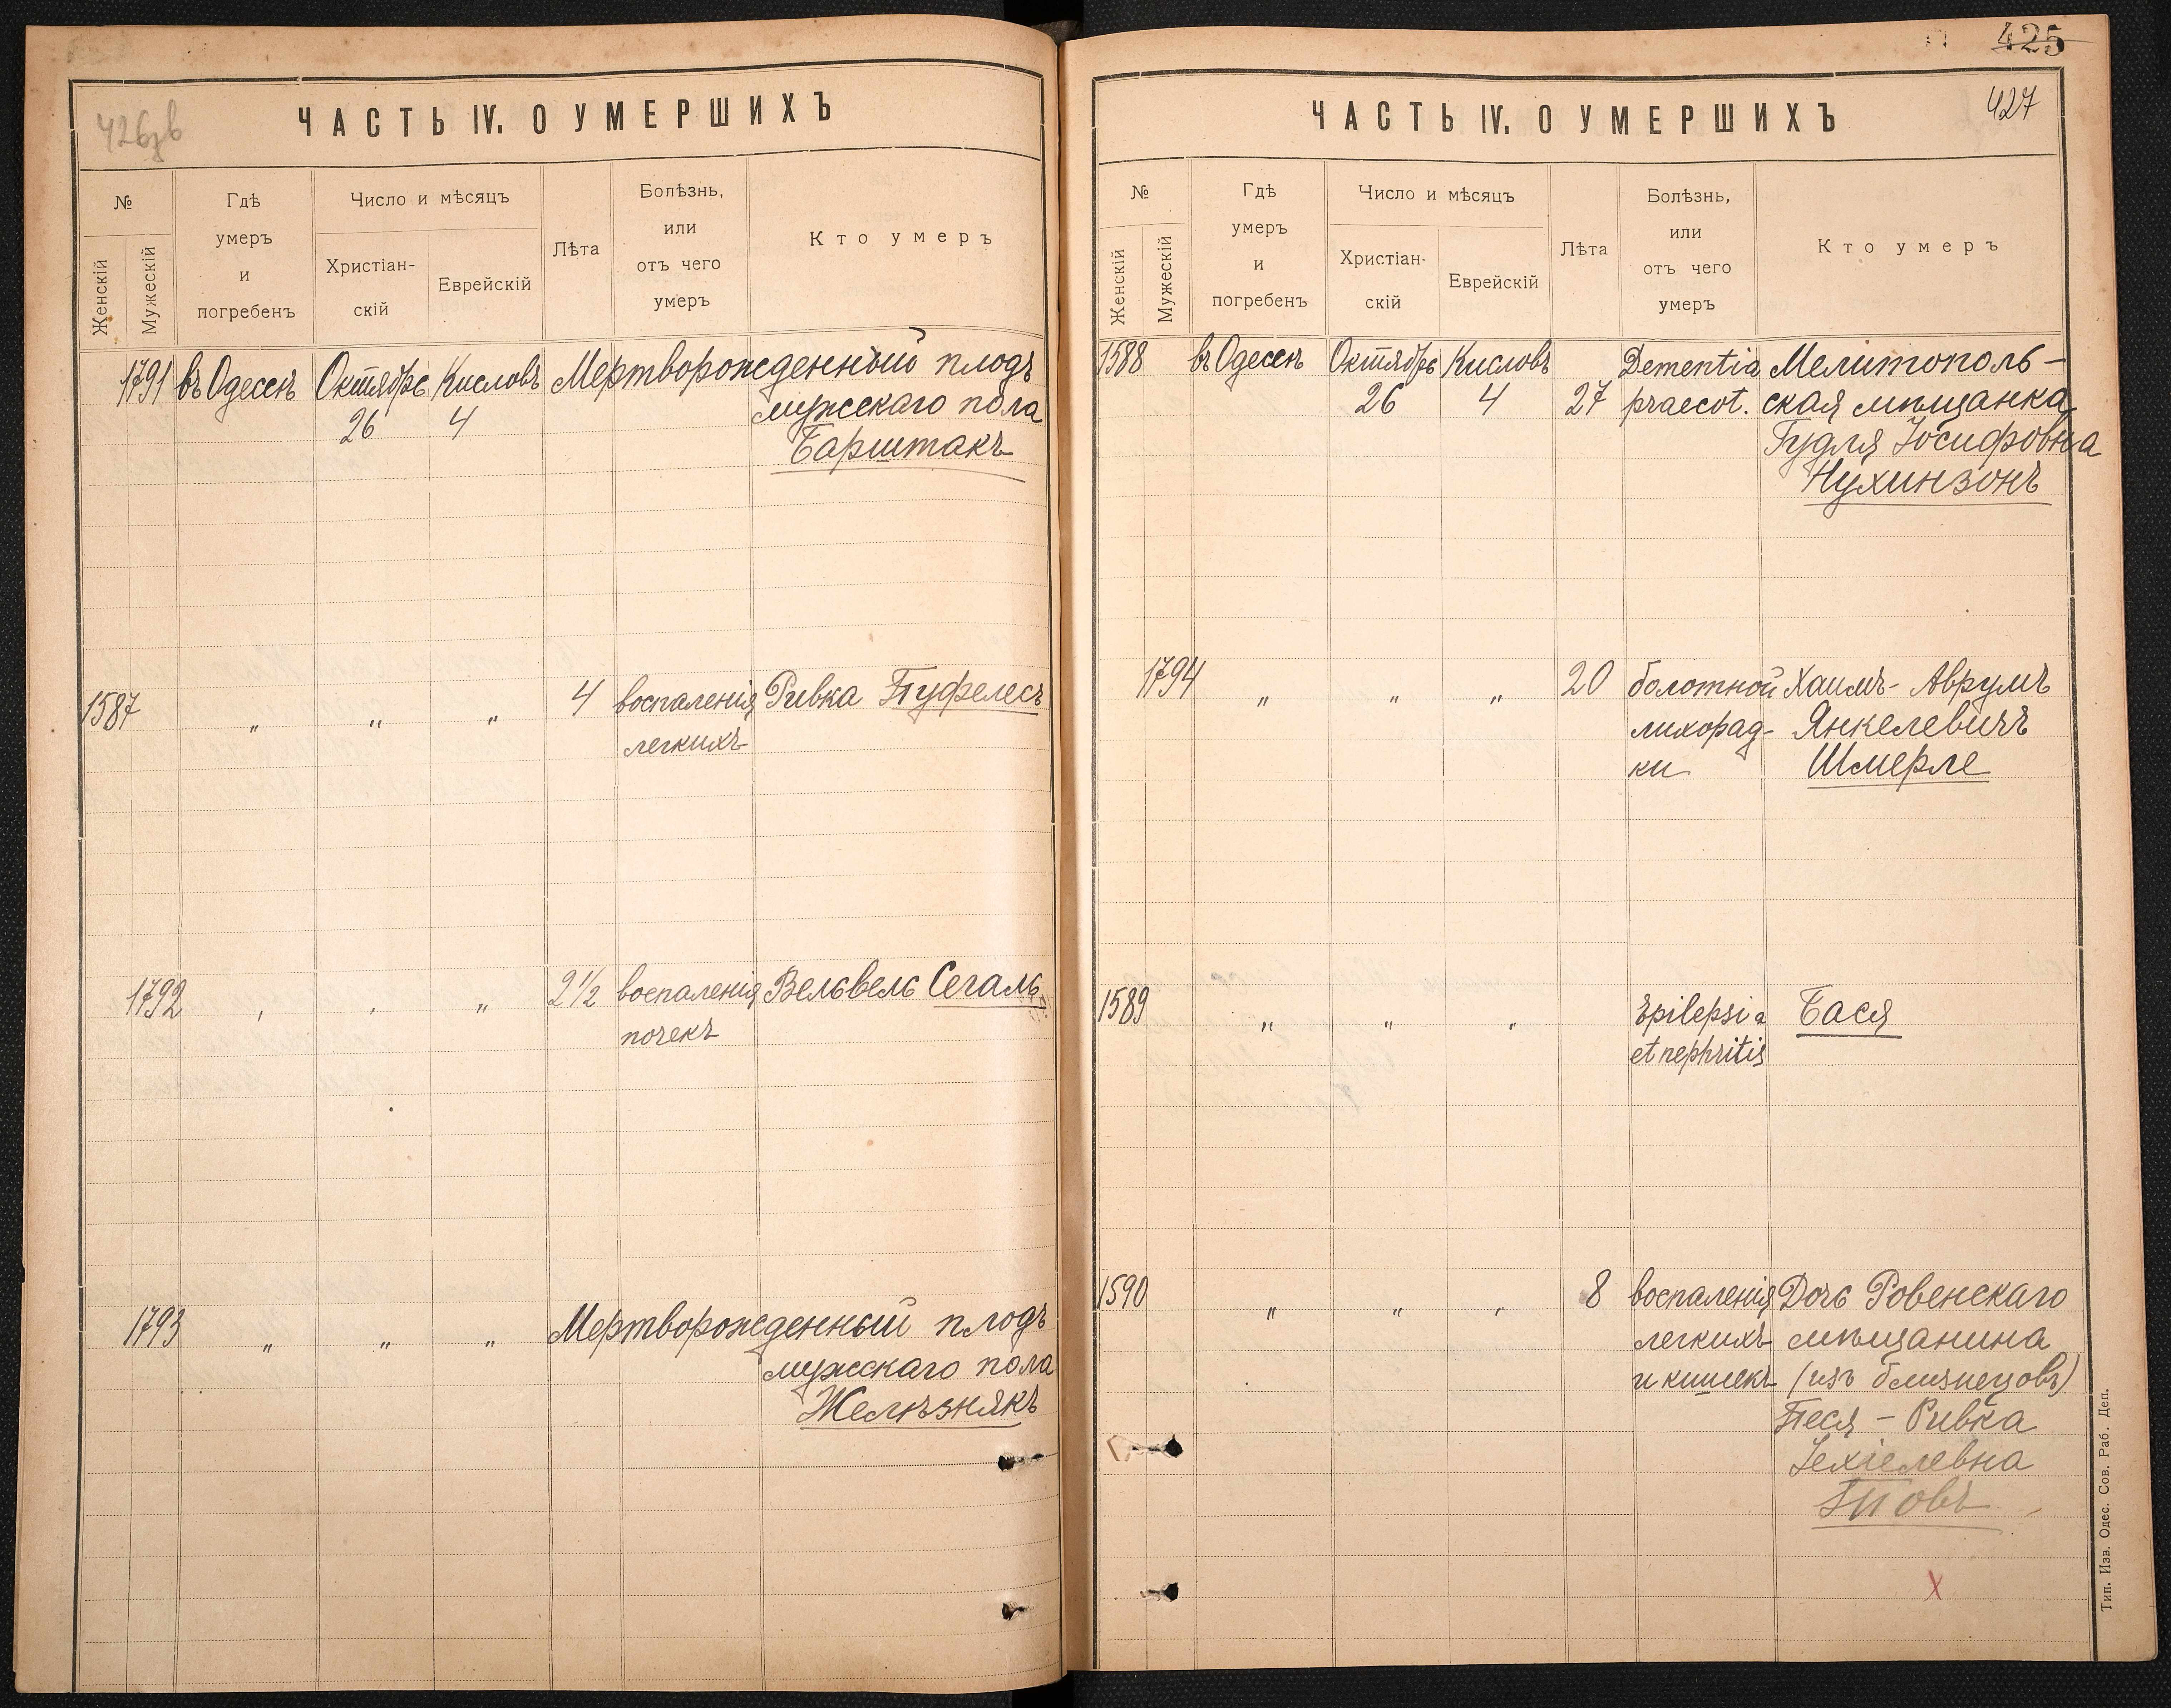 426зв
ЧАСТЬ IV. О УМЕРШИХЪ
№
Женскій
Мужескій
Гдѣ
умеръ
и
погребенъ
Число и мѣсяцъ
Христіан-
скій
Еврейскій
Лѣта
Болѣзнь,
или
отъ чего
умеръ
Кто умеръ
1791 въ Одессѣ Октябрь Кисловъ Мертворожденный плодъ
26 4 мужскаго пола
Барштакъ
1587 " " " 4 воспаленія Ривка Пуфелесъ
легкихъ
1792 " " " 2 1/2 воспаленія Вельвель Сегаль
почекъ
1793 " " " Мертворожденный плодъ
мужскаго пола
Желѣзнякъ
425
427
ЧАСТЬ IV. О УМЕРШИХЪ
№
Женскій
Мужескій
Гдѣ
умеръ
и
погребенъ
Число и мѣсяцъ
Христіан-
скій
Еврейскій
Лѣта
Болѣзнь,
или
отъ чего
умеръ
Кто умеръ
1588 въ Одессѣ Октябрь Кисловъ Dementia Мелитополь-
26 4 27 praecot. ская мѣщанка
Гудля Іосифовна
Нухинзонъ
1794 " " " 20 болотной Хаимъ-Аврумъ
лихорад- Янкелевичъ
ки Шмерле
1589 " " " Epilepsia Бася
et nephritis
1590 " " " 8 воспаленія Дочь Ровенскаго
легкихъ мѣщанина
и кишекъ (изъ близнецовъ)
Песя - Ривка
Іехіелевна
X
Тип. Изв. Одес. Сов. Раб. Деп.